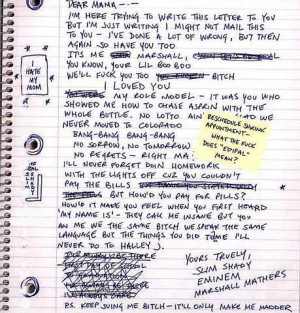 DEAR MAMA - - -
I'M HERE TRYING TO WRITE THIS LETTER TO YOU
BUT I'M JUST WRITING I MIGHT NOT MAIL THIS
TO YOU - I'VE DONE A LOT OF WRONG, BUT THEN
AGAIN SO HAVE YOU TOO
IT'S ME MARSHALL,
YOU KNOW, YOUR LIL BOO BOO
WE'LL FUCK YOU TOO BITCH
I LOVED YOU
MY ROLE MODEL - IT WAS YOU WHO
SHOWED ME HOW TO CHASE ASPRIN WITH THE
WHOLE BOTTLE. NO LOTTO WE
NEVER MOVED TO COLORADO
BANG-BANG BANG-BANG
NO SORROW, NO TOMORROW
NO REGRETS - RIGHT MA
I'LL NEVER FORGET DOIN HOMEWORK
WITH THE LIGHTS OFF CUZ YOU COULDN'T
PAY THE BILLS
BUT HOW'D YOU PAY FOR PILLS?
HOW'D IT MAKE YOU FEEL WHEN YOU FIRST HEARD
'MY NAME IS' - THEY CALL ME INSANE BUT YOU
AN ME WE THE SAME BITCH WE SPEAK THE SAME
LANGUAGE BUT THE THINGS YOU DID TO ME I'LL
NEVER DO TO HALLEY J.
YOURS TRUELY,
SLIM SHADY
EMINEM MATHERS
MARSHALL MATHERS
P.S. KEEP SUING ME BITCH - IT'LL ONLY MAKE ME MADDER
I
HATE
MY
MOM
RESCHEDULE SHRINK
APPOINTMENT -
WHAT THE FUCK
DOES "EDIPAL"
MEAN?